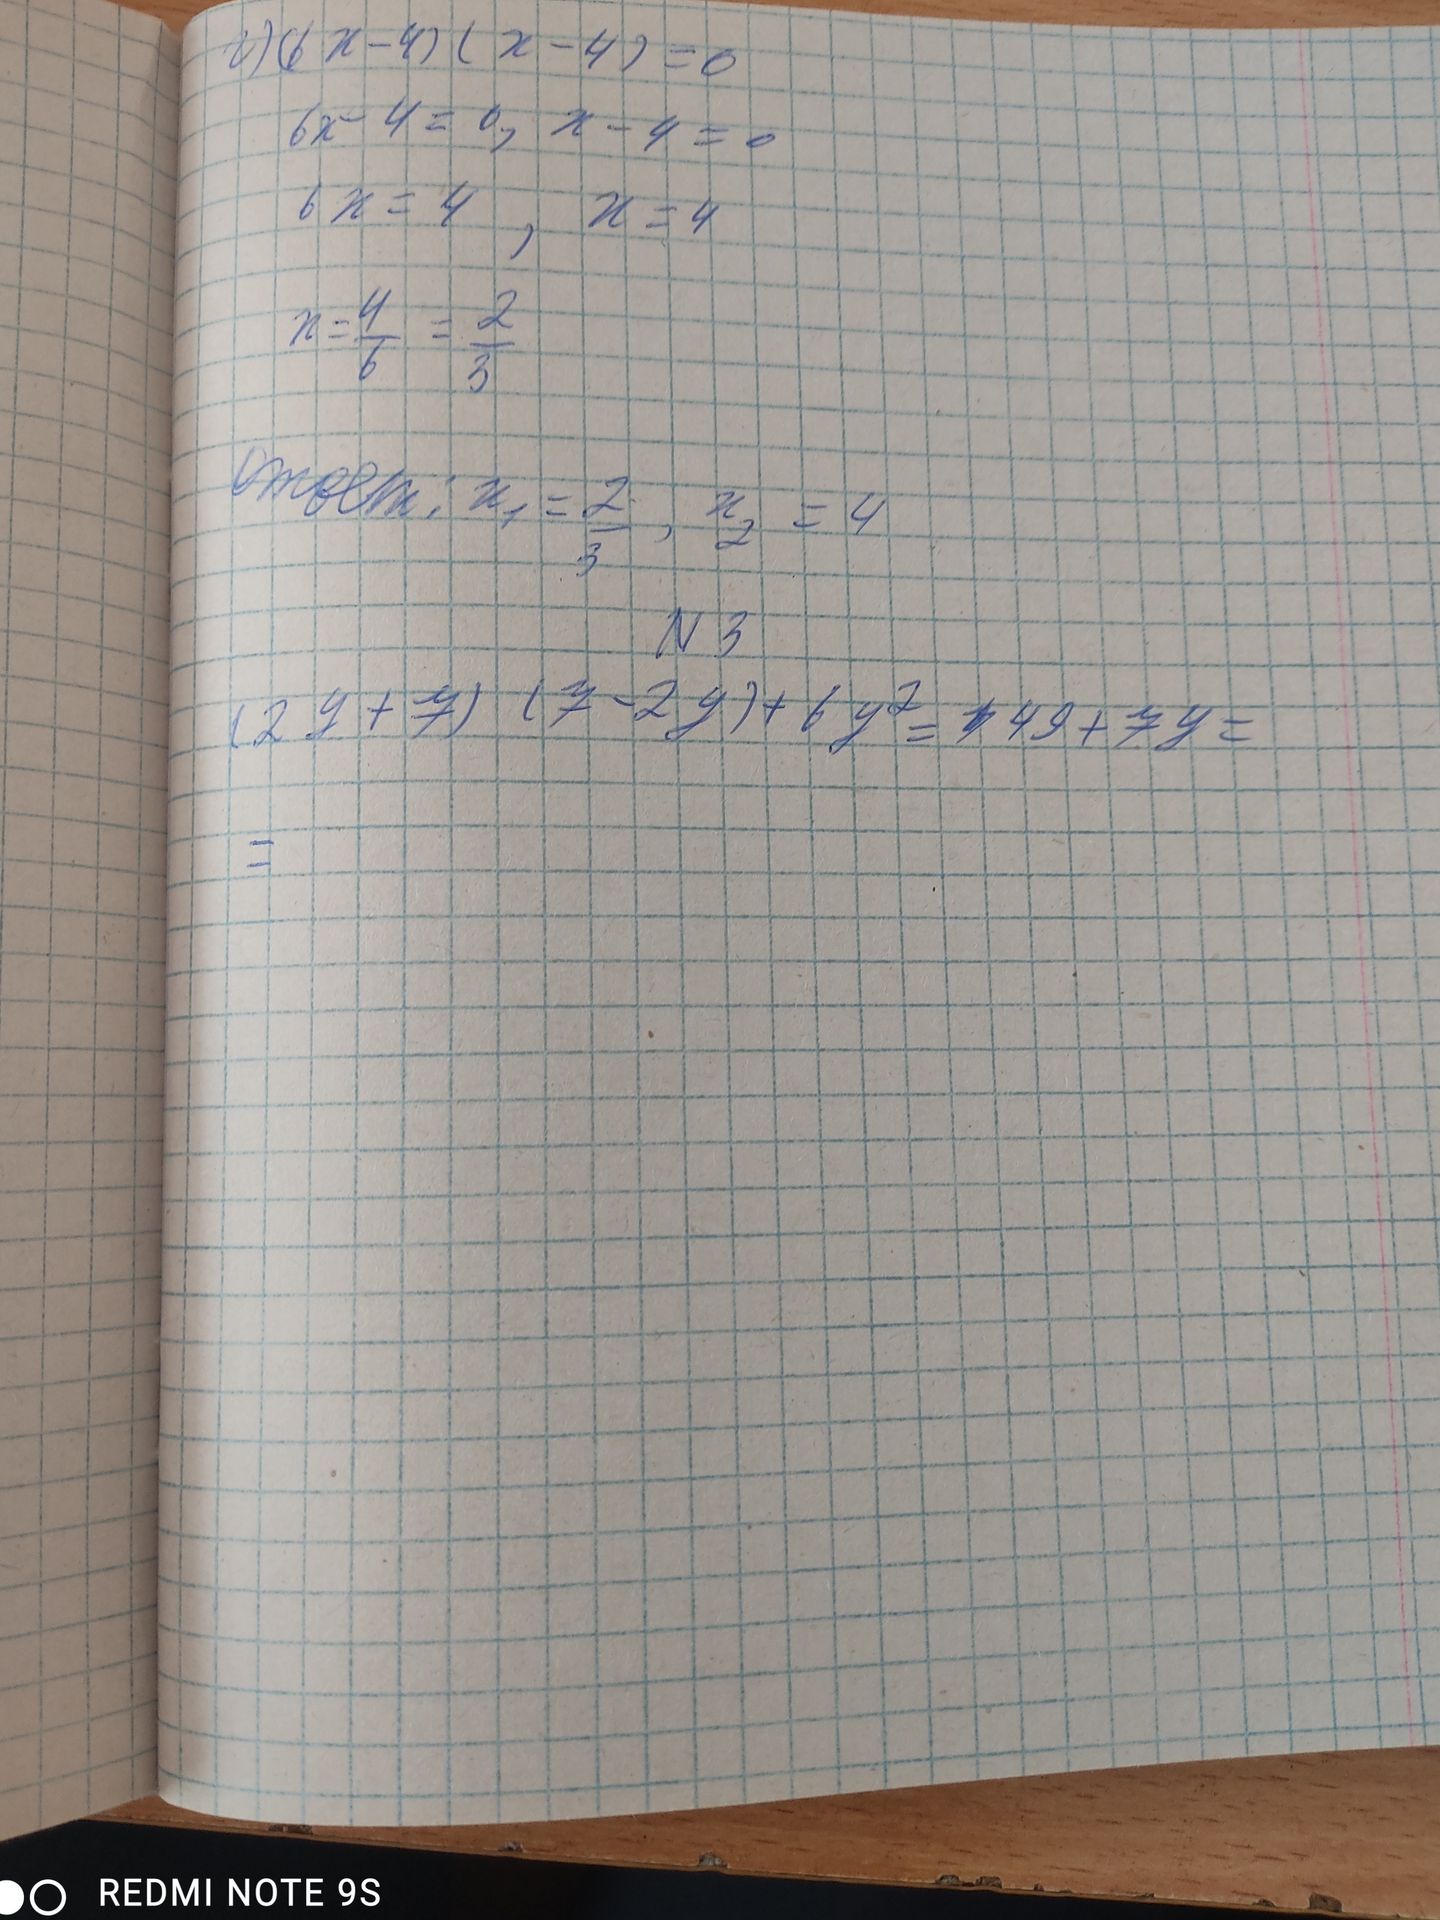 г) (6x-4)(x-4)=0
6x-4=0, x-4=0
6x=4, x=4
x=4/6=2/3
Ответ: x₁=2/3, x₂=4
N3
(2y+7)(7-2y)+6y²=49+7y=
=
REDMI NOTE 9S